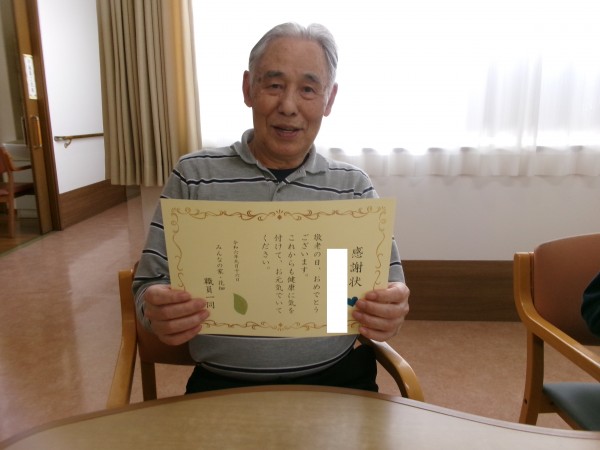 感謝状
敬老の日、おめでとう
ございます。
これからも健康に気を
付けて、お元気でいて
ください。
みんなの家・
職員一同